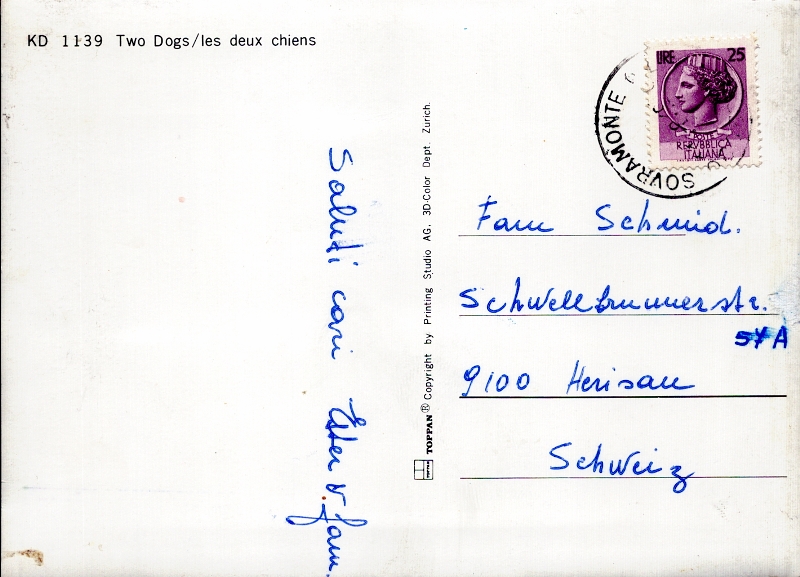 KD 1139 Two Dogs/les deux chiens
LIRE 25
POSTE
REPVBBLICA
ITALIANA
SOVRAMONTE
Saluti cari Ester & fam.
TOPPAN® Copyright by Printing Studio AG. 3D-Color Dept. Zurich.
TOPPAN
Fam Schmid.
Schwellbrunnerstr.
54 A
9100 Herisau
Schweiz